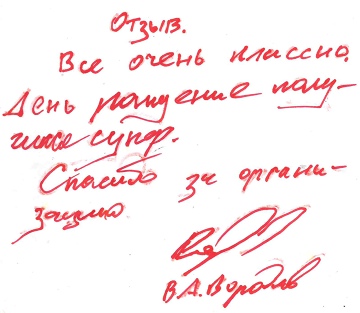 Отзыв.
Все очень классно.
День рождение полу-
чился супер.
Спасибо за органи-
зацию
В.А. Воробьёв